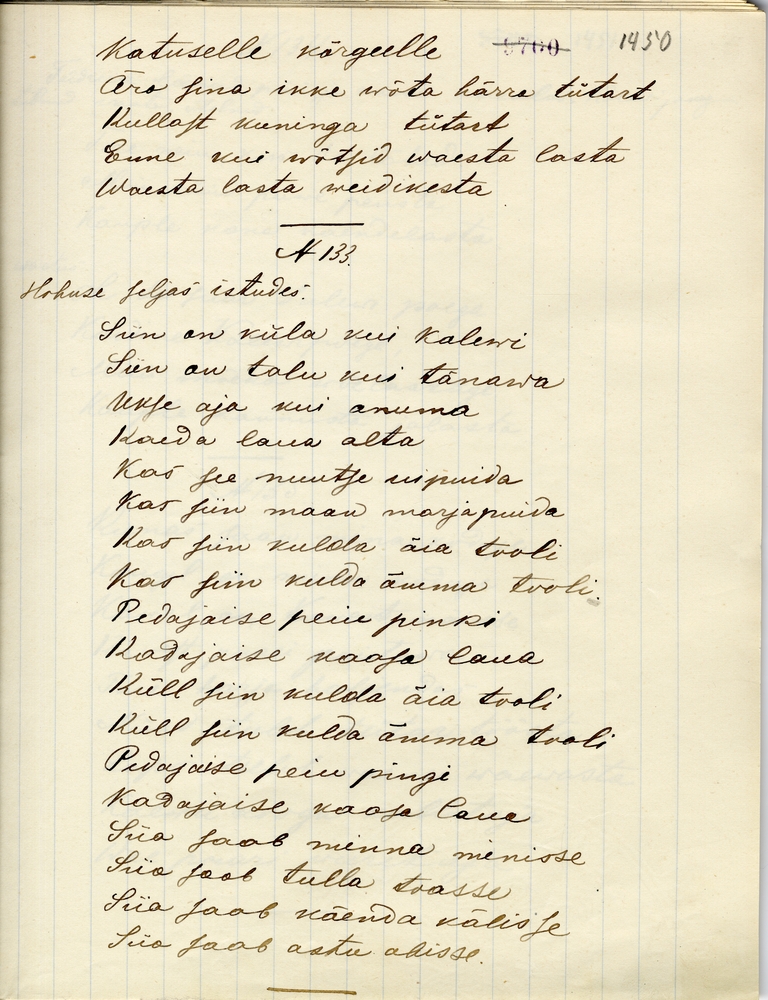 Katuselle kõrgeelle 9760 1450
Ära sina ikke wõta härra tütart
Kullast kuninga tütart
Enne kui wõtsid waesta lasta
Waesta lasta weidikesta
N 133.
Hobuse seljas istudes.
Siin on küla kui Kalewi
Siin on talu kui tänawa
Ukse aja kui anuma
Kaeda laua alta
Kas see nuutse uipuida
Kas siin maan marjapuida
Kas siin kulda äia tooli
Kas siin kulda ämma tooli.
Pedajaise peiu pinki
Kadajaise kaasa laua
Küll siin kulda äia tooli
Küll siin kulda ämma tooli
Pedajaise peiu pingi
Kadajaise kaasa laua
Siia saab minna menisse
Siia saab tulla toasse
Siia saab käenda kälisse
Siia saab astu abisse.